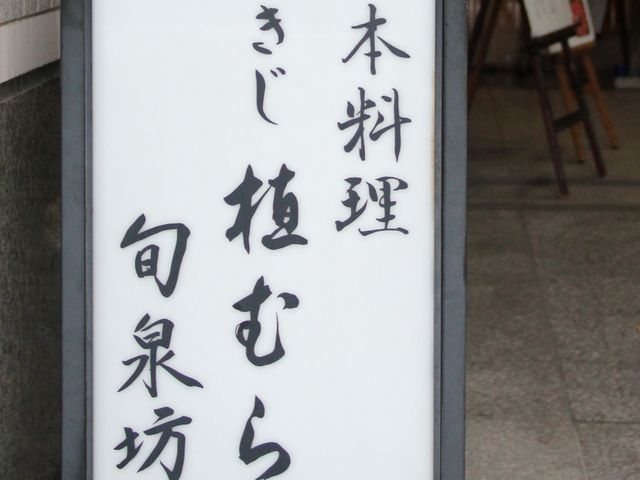 本料理
きじ 植むら
旬泉坊